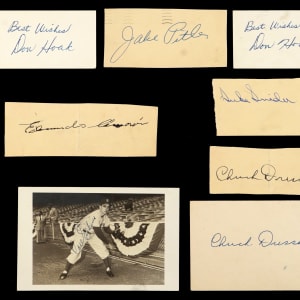 Best Wishes
Don Hoak
Jake Pitler
Best Wishes
Don Ho
Edmundo Amorós
Duke Snider
Chuck Dress
Chuck Dresse